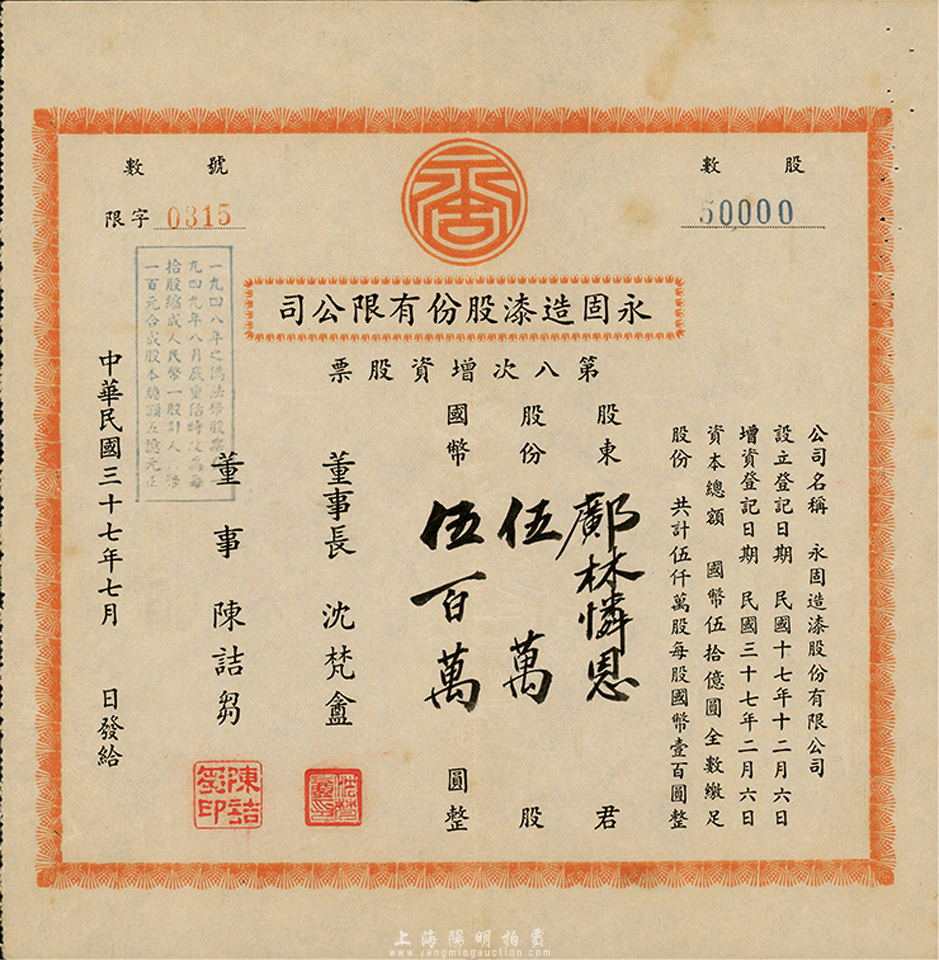 股數
50000
號數
限字 0315
永固造漆股份有限公司
第八次增資股票
公司名稱 永固造漆股份有限公司
設立登記日期 民國十七年十二月六日
增資登記日期 民國三十七年二月六日
資本總額 國幣伍拾億圓全數繳足
股份 共計伍仟萬股每股國幣壹百圓整
股東 鄺林憐恩 君
股份 伍萬 股
國幣 伍百萬 圓整
董事長 沈梵盦
董事 陳詰芻
陳詰芻印
一九四八年之偽法幣股票
九四九年八月嚴重估時改為每
拾股縮成人民幣一股計人民幣
一百元合成股本總額五億元正
中華民國三十七年七月 日發給
上海陽明拍賣
www.yangmingauction.com